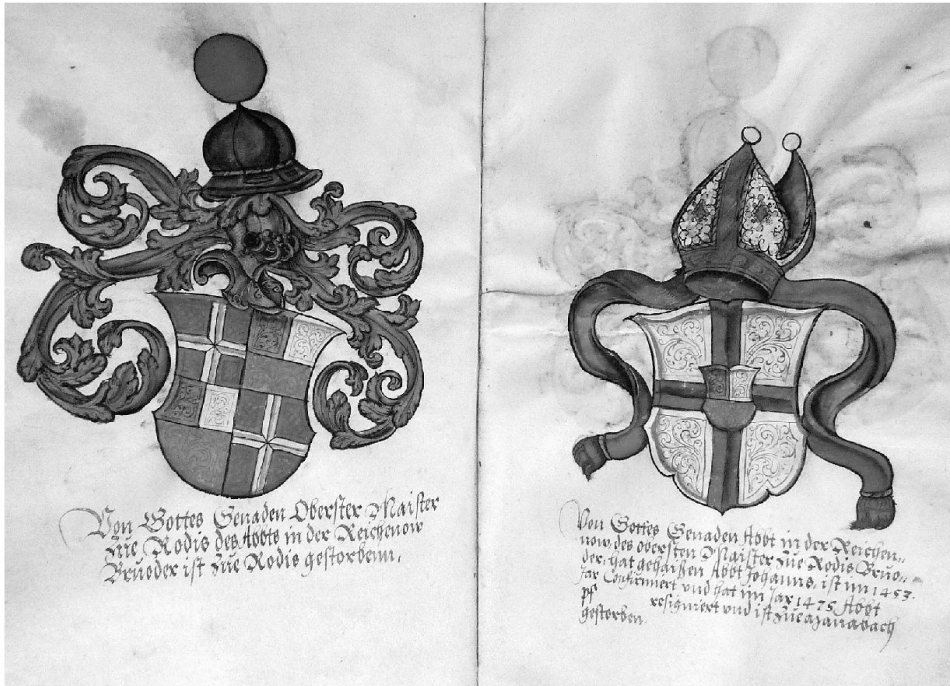 Von Gottes Genaden Oberster Maister
zue Rodis des Abbts in der Reichenow
Bruoder ist zue Rodis gestorbenn.
Von Gottes Genaden Abbt in der Reichen„
now, des obersten Maister zue Rodis Bruo„
der, hat gehaißen Abbt Johanns, ist im 1453.
Jar Confirmiert vnd hat im Jar 1475 Abbt
resigniert vnd ist zue
gestorben